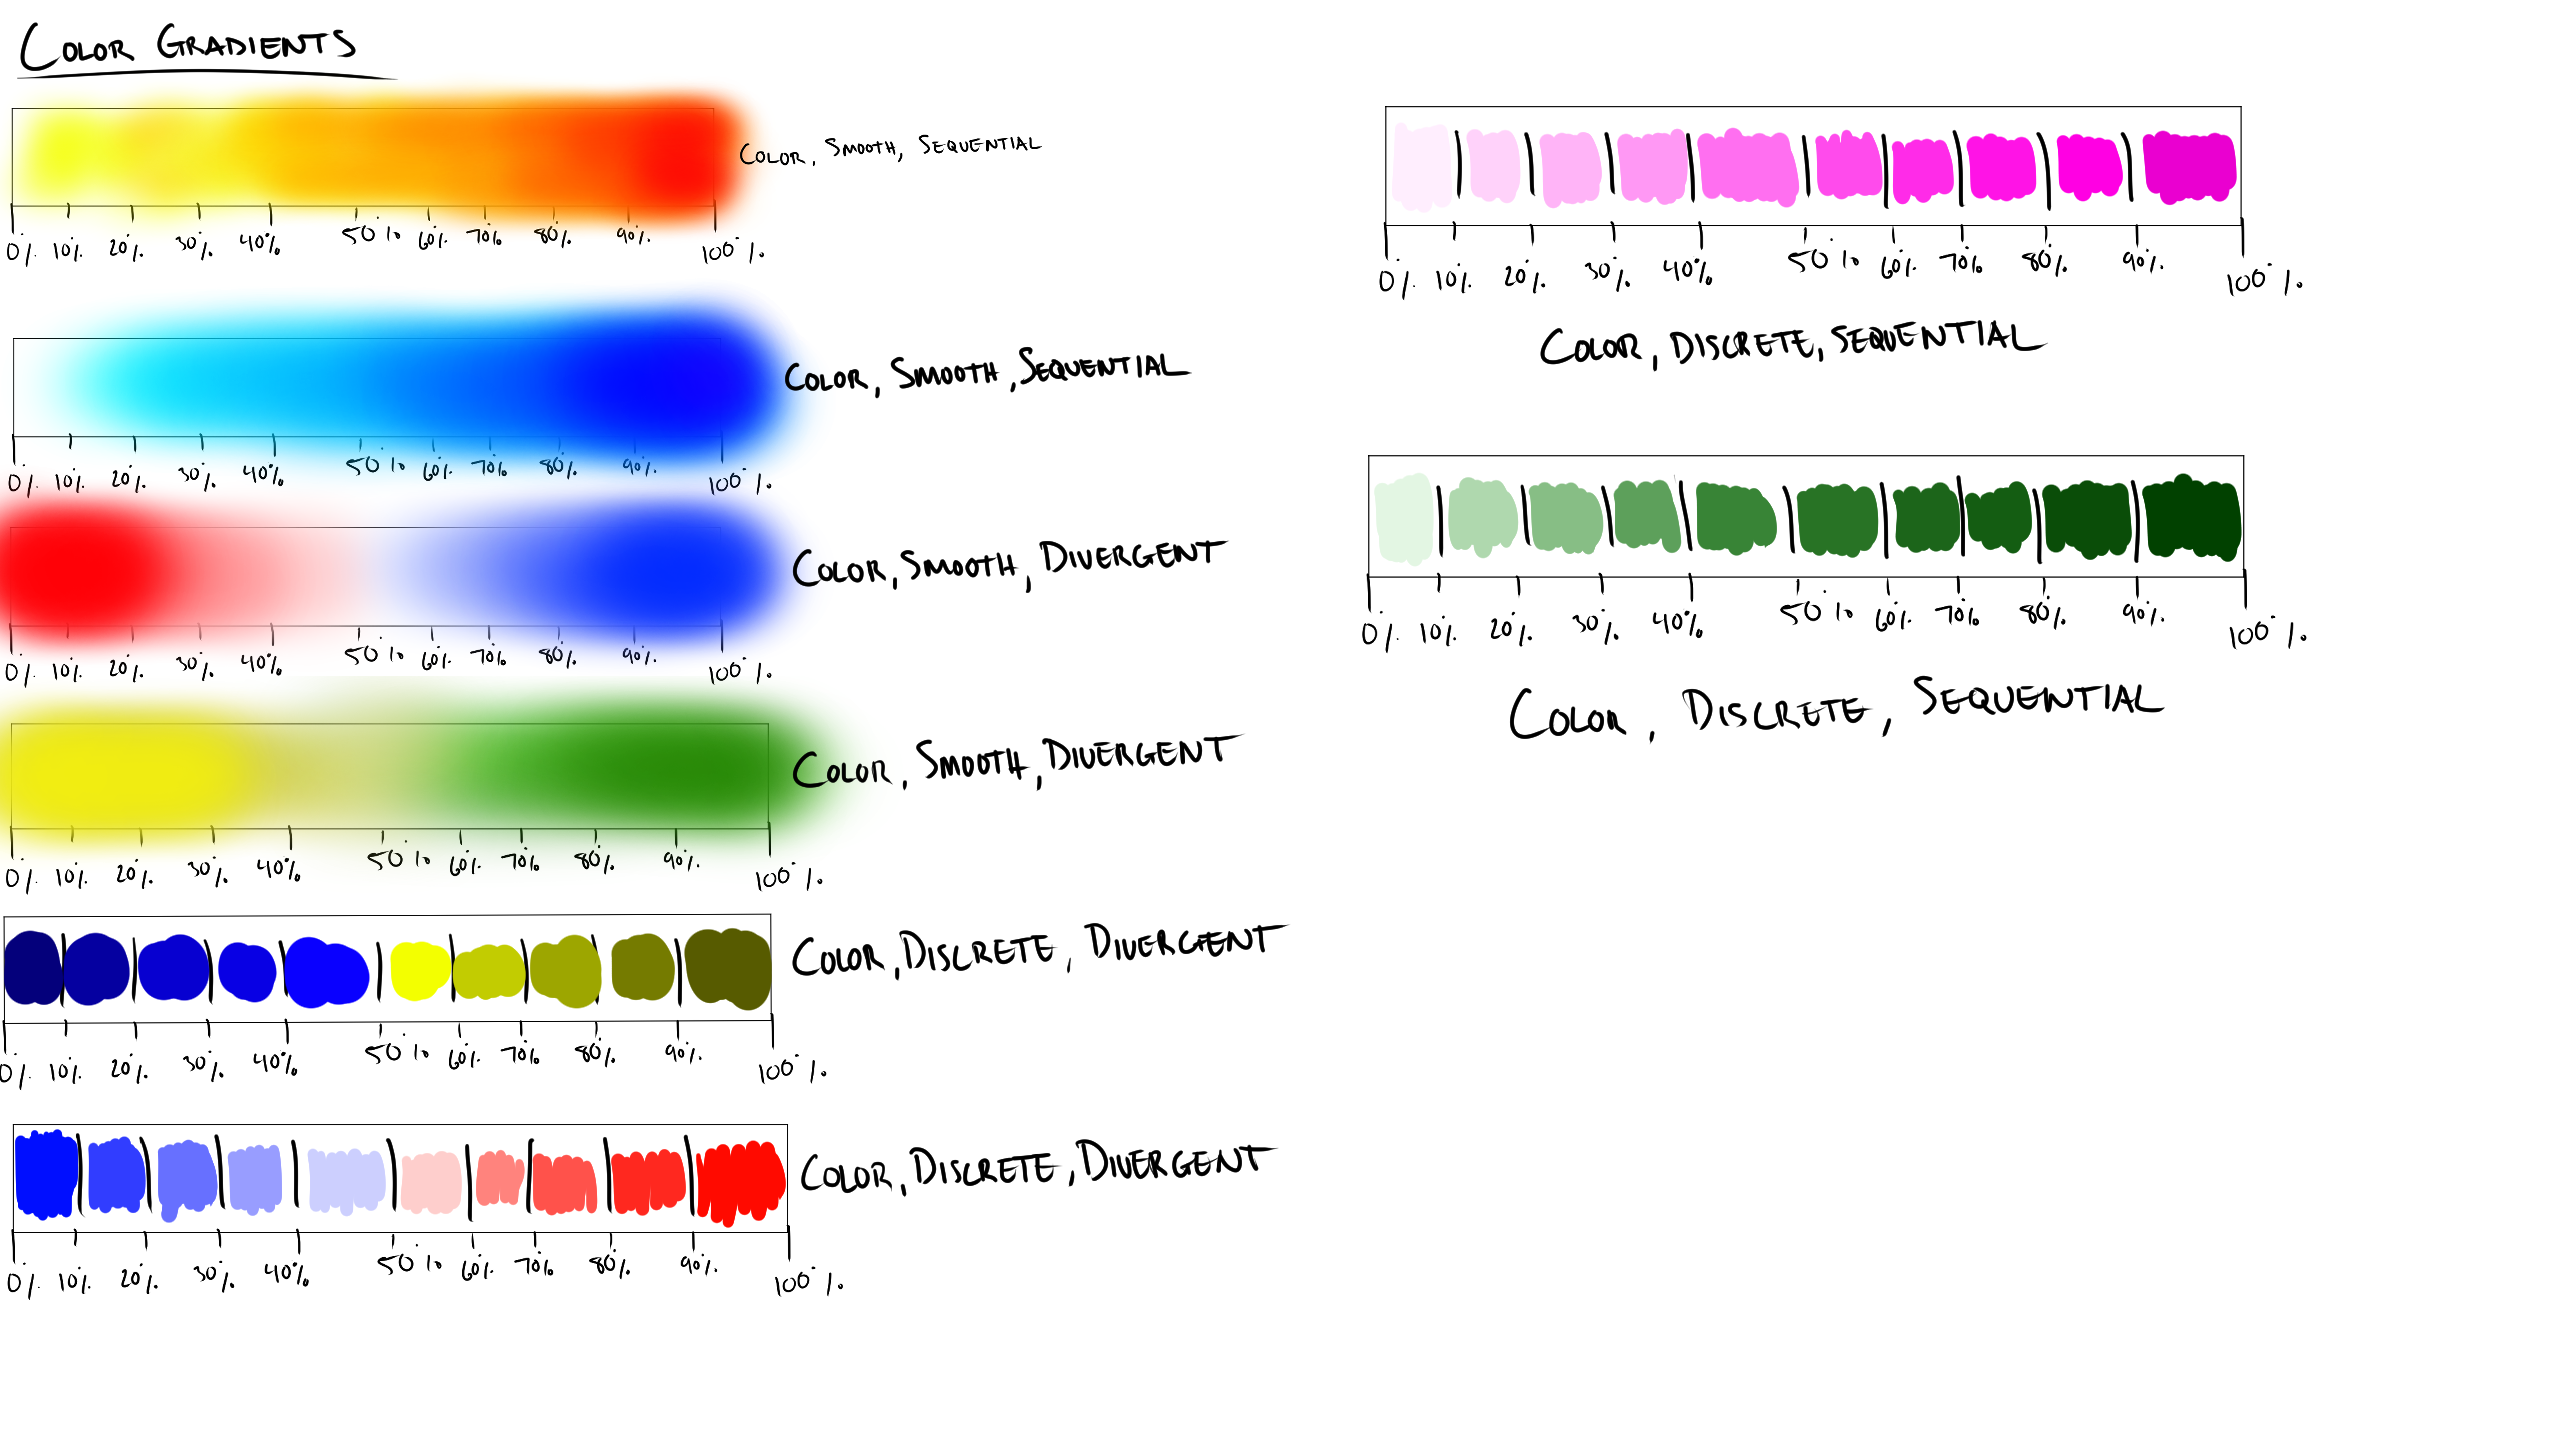 COLOR GRADIENTS
COLOR, SMOOTH, SEQUENTIAL
0% 10% 20% 30% 40% 50% 60% 70% 80% 90% 100%
COLOR, SMOOTH, SEQUENTIAL
0% 10% 20% 30% 40% 50% 60% 70% 80% 90% 100%
COLOR, SMOOTH, DIVERGENT
0% 10% 20% 30% 40% 50% 60% 70% 80% 90% 100%
COLOR, SMOOTH, DIVERGENT
0% 10% 20% 30% 40% 50% 60% 70% 80% 90% 100%
COLOR, DISCRETE, DIVERGENT
0% 10% 20% 30% 40% 50% 60% 70% 80% 90% 100%
COLOR, DISCRETE, DIVERGENT
0% 10% 20% 30% 40% 50% 60% 70% 80% 90% 100%
0% 10% 20% 30% 40% 50% 60% 70% 80% 90% 100%
COLOR, DISCRETE, SEQUENTIAL
0% 10% 20% 30% 40% 50% 60% 70% 80% 90% 100%
COLOR, DISCRETE, SEQUENTIAL